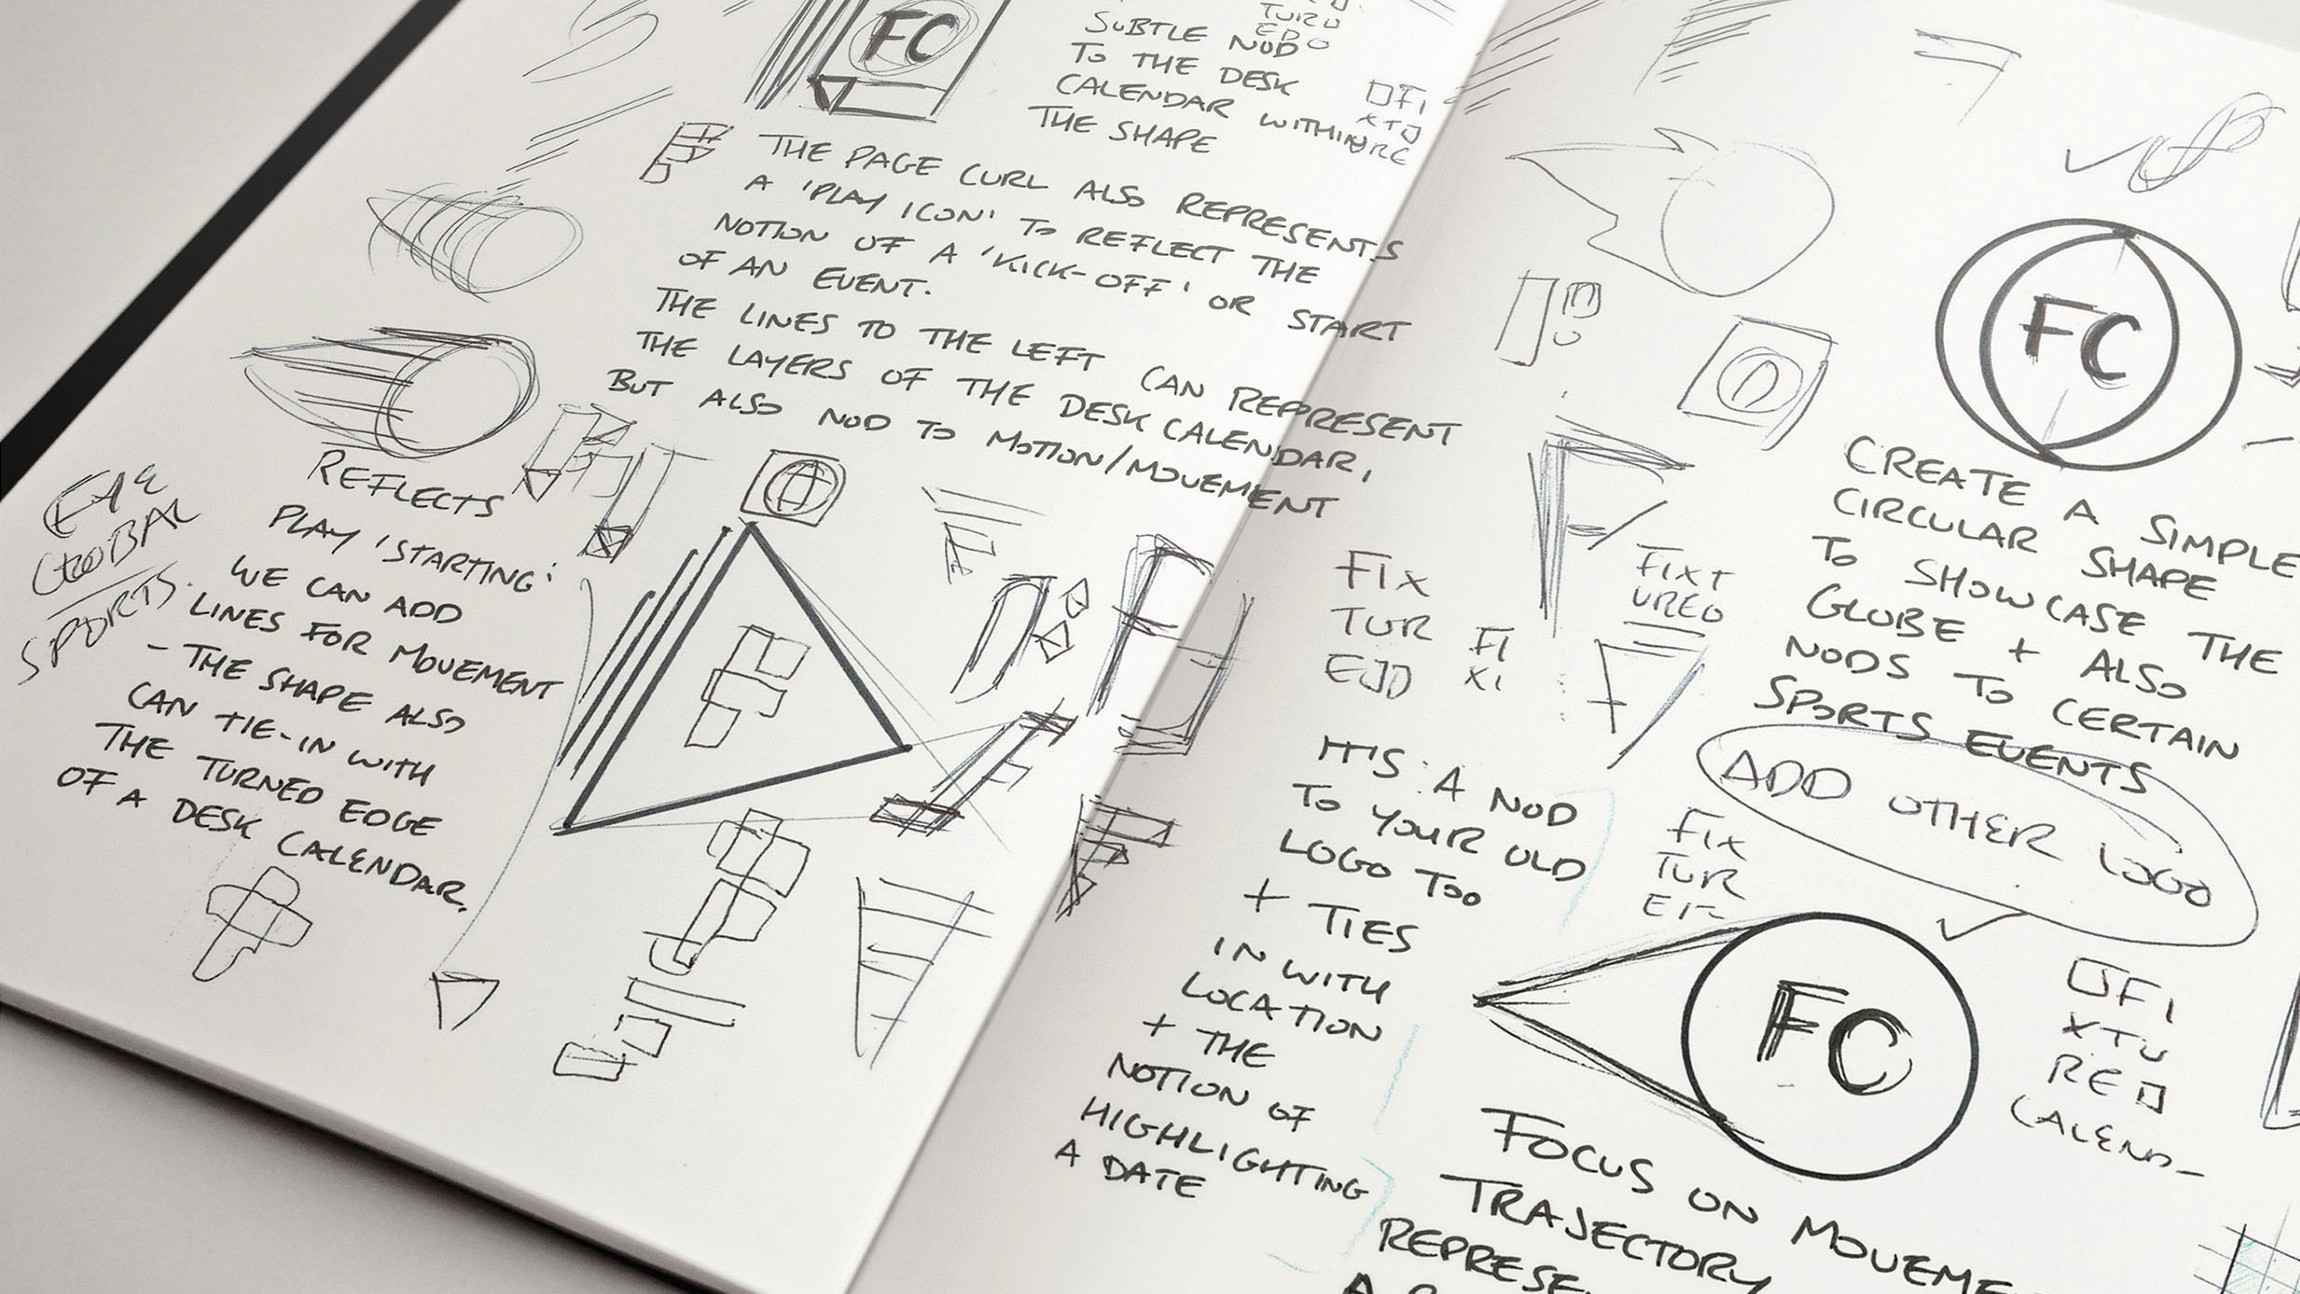 FC
SUBTLE NOD
TO THE DESK
CALENDAR WITHIN
THE SHAPE
TURD
EDO
FI
XTU
RE
THE PAGE CURL ALSO REPRESENTS
A 'PLAY ICON' TO REFLECT THE
NOTION OF A 'KICK-OFF' OR START
OF AN EVENT.
THE LINES TO THE LEFT CAN REPRESENT
THE LAYERS OF THE DESK CALENDAR,
BUT ALSO NOD TO MOTION/MOVEMENT
REFLECTS
PLAY 'STARTING'
WE CAN ADD
LINES FOR MOVEMENT
- THE SHAPE ALSO
CAN TIE-IN WITH
THE TURNED EDGE
OF A DESK CALENDAR.
GLOBAL
SPORTS
FC
CREATE A SIMPLE
CIRCULAR SHAPE
TO SHOWCASE THE
GLOBE + ALSO
NODS TO CERTAIN
SPORTS EVENTS
ADD OTHER LOGO
FIX
TUR
E
FI
XI
FIXT
URED
IT'S A NOD
TO YOUR OLD
LOGO TOO
+ TIES
IN WITH
LOCATION
+ THE
NOTION OF
HIGHLIGHTING
A DATE
FIX
TUR
E
FC
FI
XTU
RE
CALEND-
FOCUS ON MOVEME
TRAJECTORY
REPRESE
A